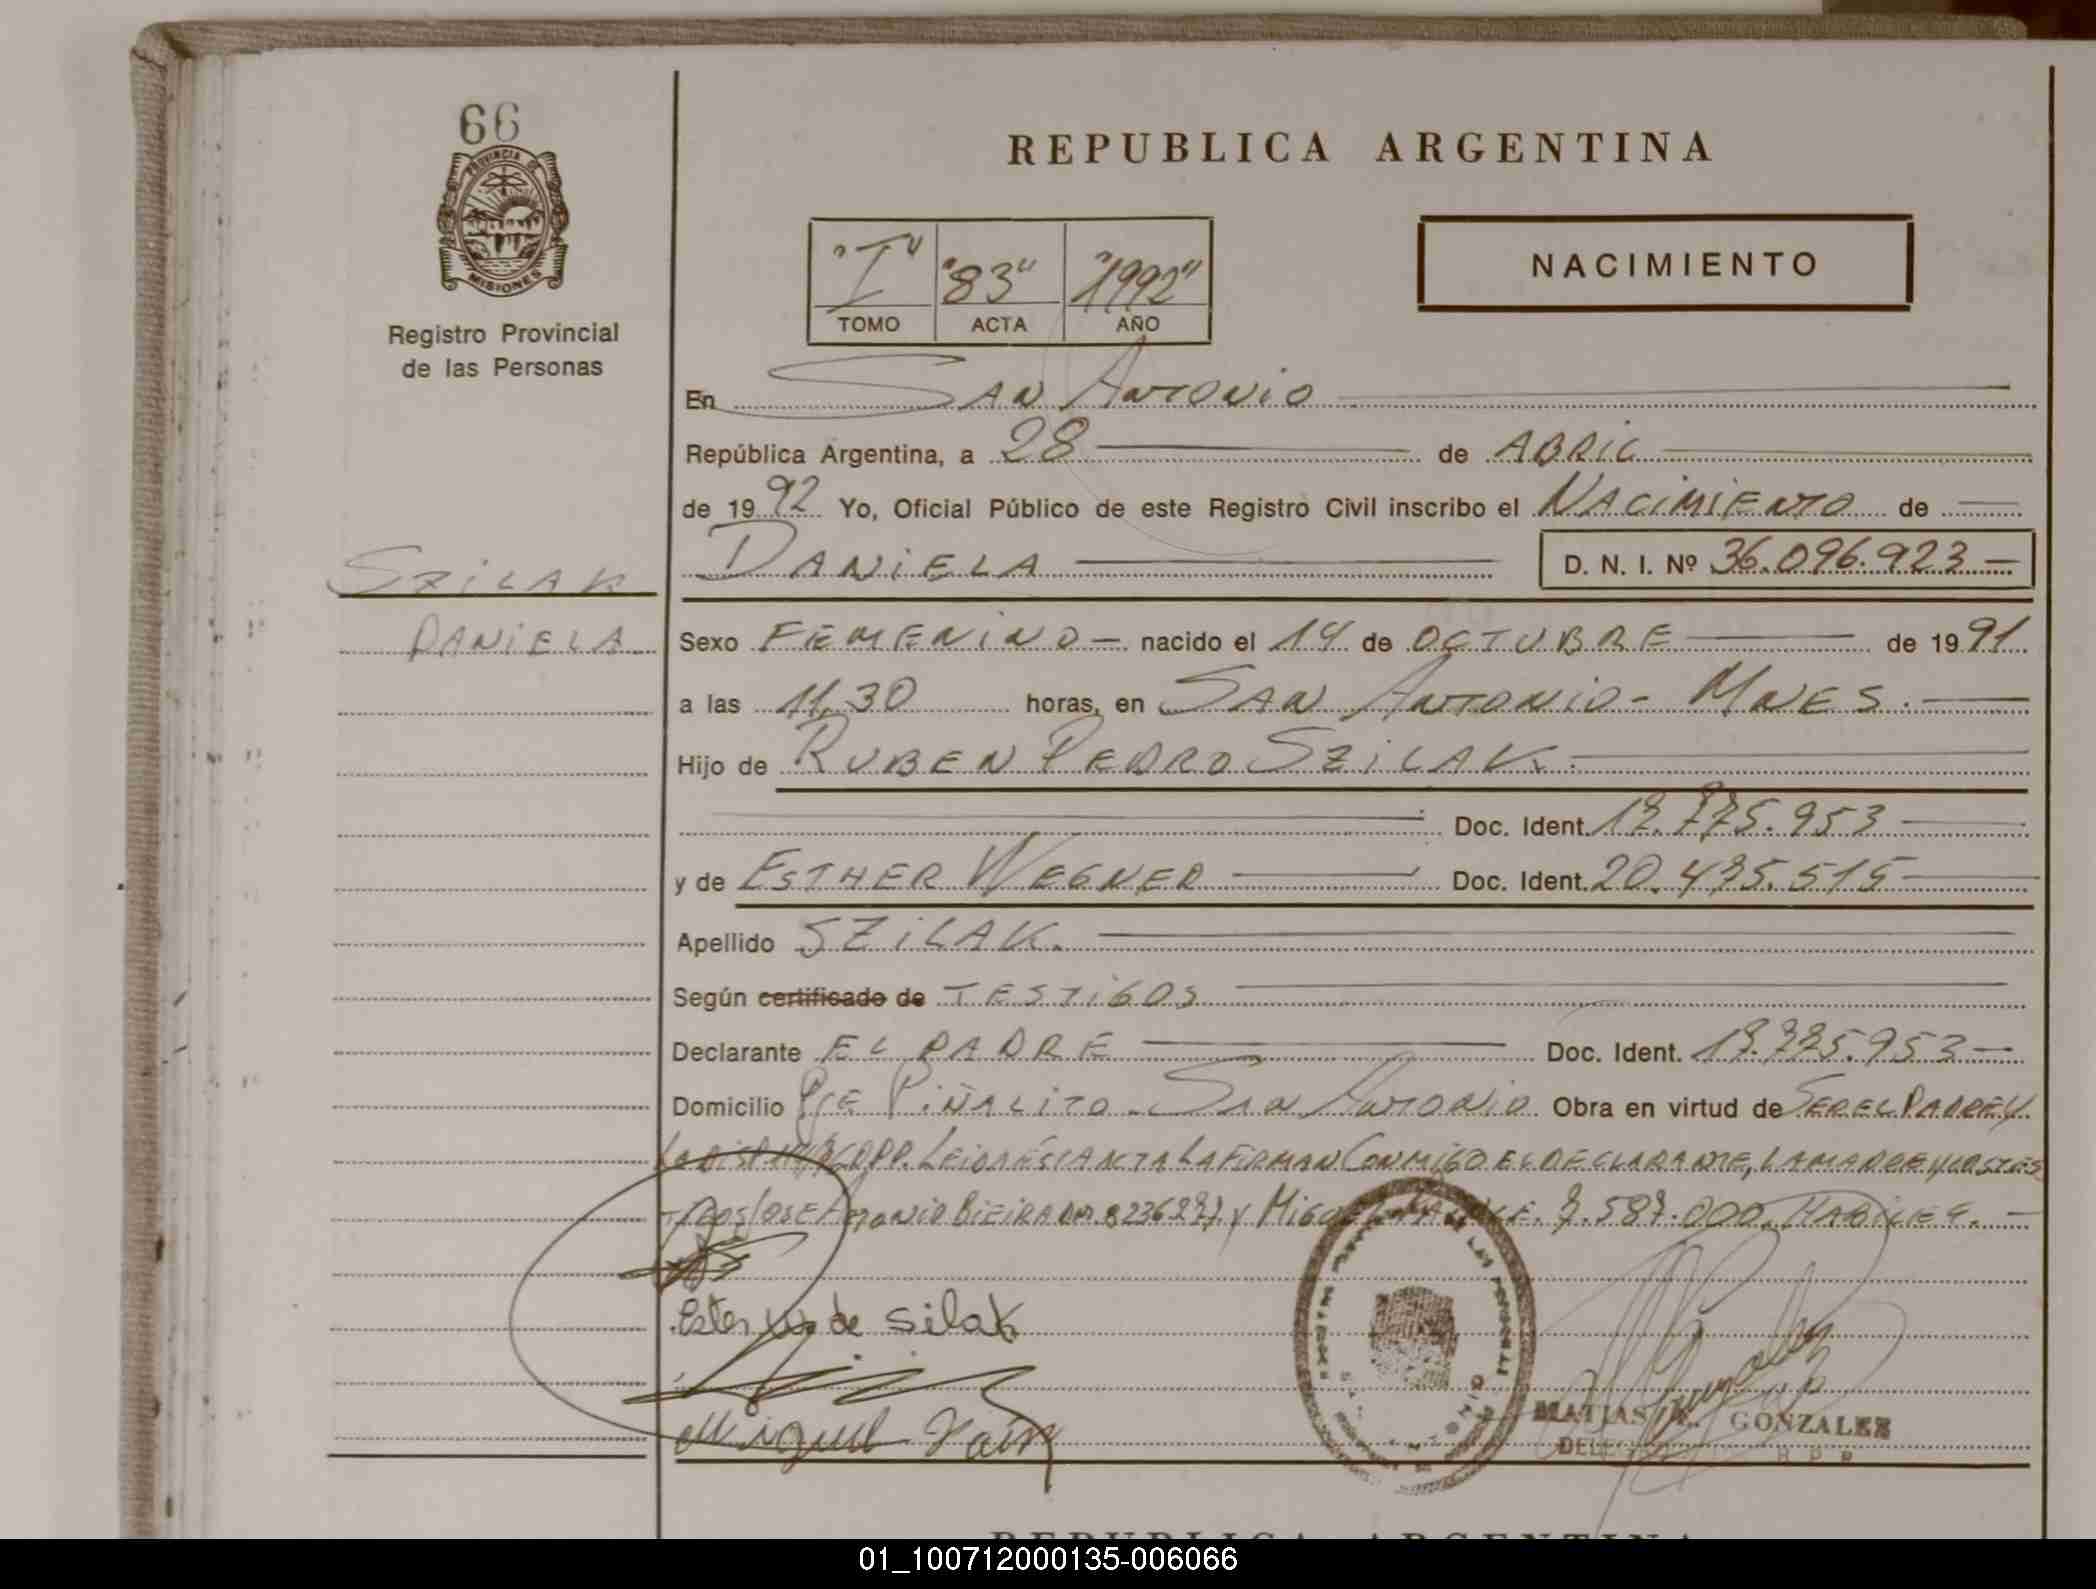 66
PROVINCIA DE
MISIONES
Registro Provincial
de las Personas
SZILAK
DANIELA
REPUBLICA ARGENTINA
"I" "83" "1992"
TOMO ACTA AÑO
NACIMIENTO
En SAN ANTONIO
República Argentina, a 28 de ABRIL
de 1992 Yo, Oficial Público de este Registro Civil inscribo el NACIMIENTO de
DANIELA D. N. I. Nº 36.096.923
Sexo FEMENINO nacido el 14 de OCTUBRE de 1991
a las 11,30 horas, en SAN ANTONIO - MNES.
Hijo de RUBEN PEDRO SZILAK.
Doc. Ident. 17.775.953
y de ESTHER WEGNER Doc. Ident. 20.475.515
Apellido SZILAK.
Según certificado de TESTIGOS
Declarante EL PADRE Doc. Ident. 17.775.953
Domicilio PJE PIÑALITO - SAN ANTONIO Obra en virtud de SER EL PADRE Y
LEIDA ESTA ACTA LA FIRMAN CONMIGO EL DECLARANTE, LA MADRE Y LOS TES
TIGOS JOSE ANTONIO BIEIRA Y MIGUEL 7.587.000. HABILES.
Ester de silak
Miguel
MATIAS GONZALEZ
R P P
REPUBLICA ARGENTINA
01_100712000135-006066